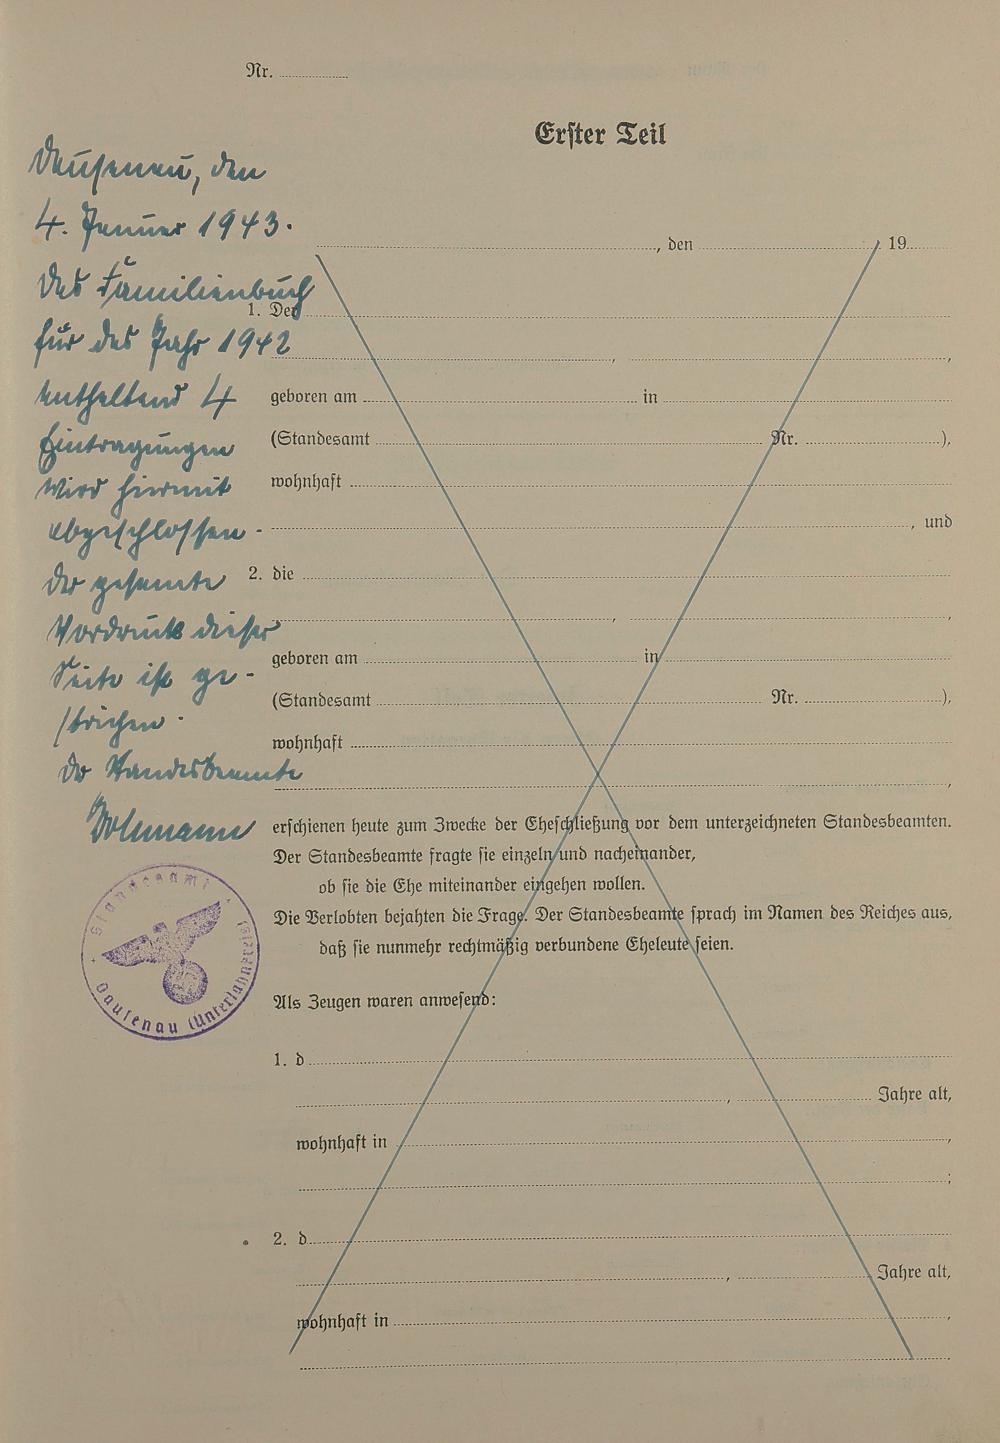 Nr.
Erster Teil
Dausenau, den
4. Januar 1943.
Das Familienbuch
für das Jahr 1942
enthaltend 4
Eintragungen
wird hiermit
abgeschlossen.
Der gesamte
Vordruck dieser
Seite ist ge-
strichen.
Der Standesbeamte
, den 19
1. Der
, ,
geboren am in
(Standesamt Nr. ),
wohnhaft
, und
2. die
, ,
geboren am in
(Standesamt Nr. ),
wohnhaft
,
erschienen heute zum Zwecke der Eheschließung vor dem unterzeichneten Standesbeamten.
Der Standesbeamte fragte sie einzeln und nacheinander,
ob sie die Ehe miteinander eingehen wollen.
Die Verlobten bejahten die Frage. Der Standesbeamte sprach im Namen des Reiches aus,
daß sie nunmehr rechtmäßig verbundene Eheleute seien.
Standesamt
Dausenau (Unterlahnkreis)
Als Zeugen waren anwesend:
1. d
, Jahre alt,
wohnhaft in ,
;
2. d
, Jahre alt,
wohnhaft in ,